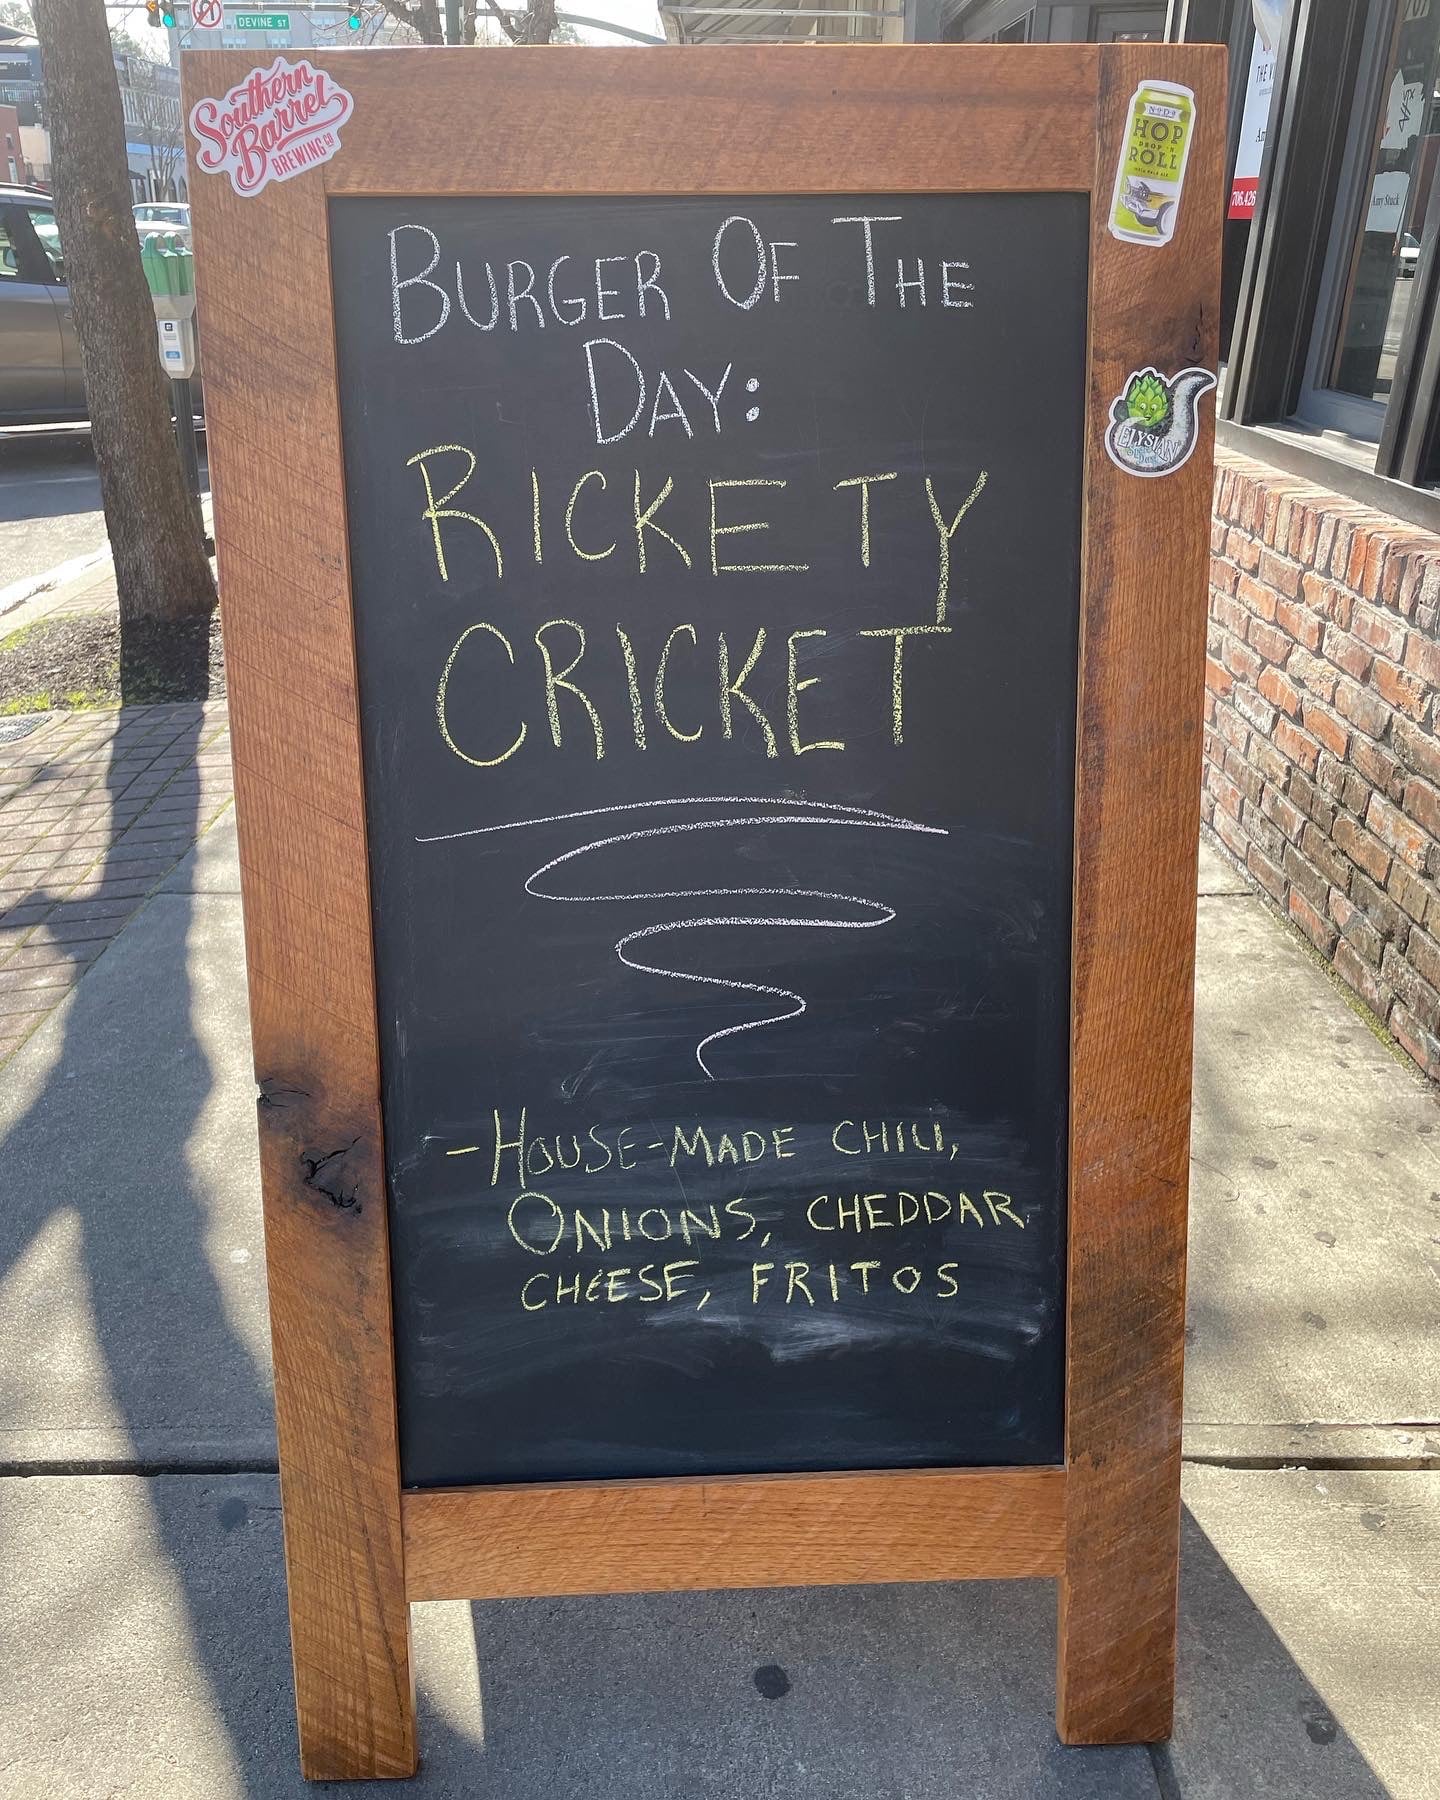 DEVINE ST
Southern
Barrel
BREWING CO
NoDa
HOP
DROP 'N
ROLL
INDIA PALE ALE
BURGER OF THE
DAY:
RICKETY
CRICKET
ELYSIAN
706.426
Amy Stuck
-HOUSE-MADE CHILI,
ONIONS, CHEDDAR
CHEESE, FRITOS